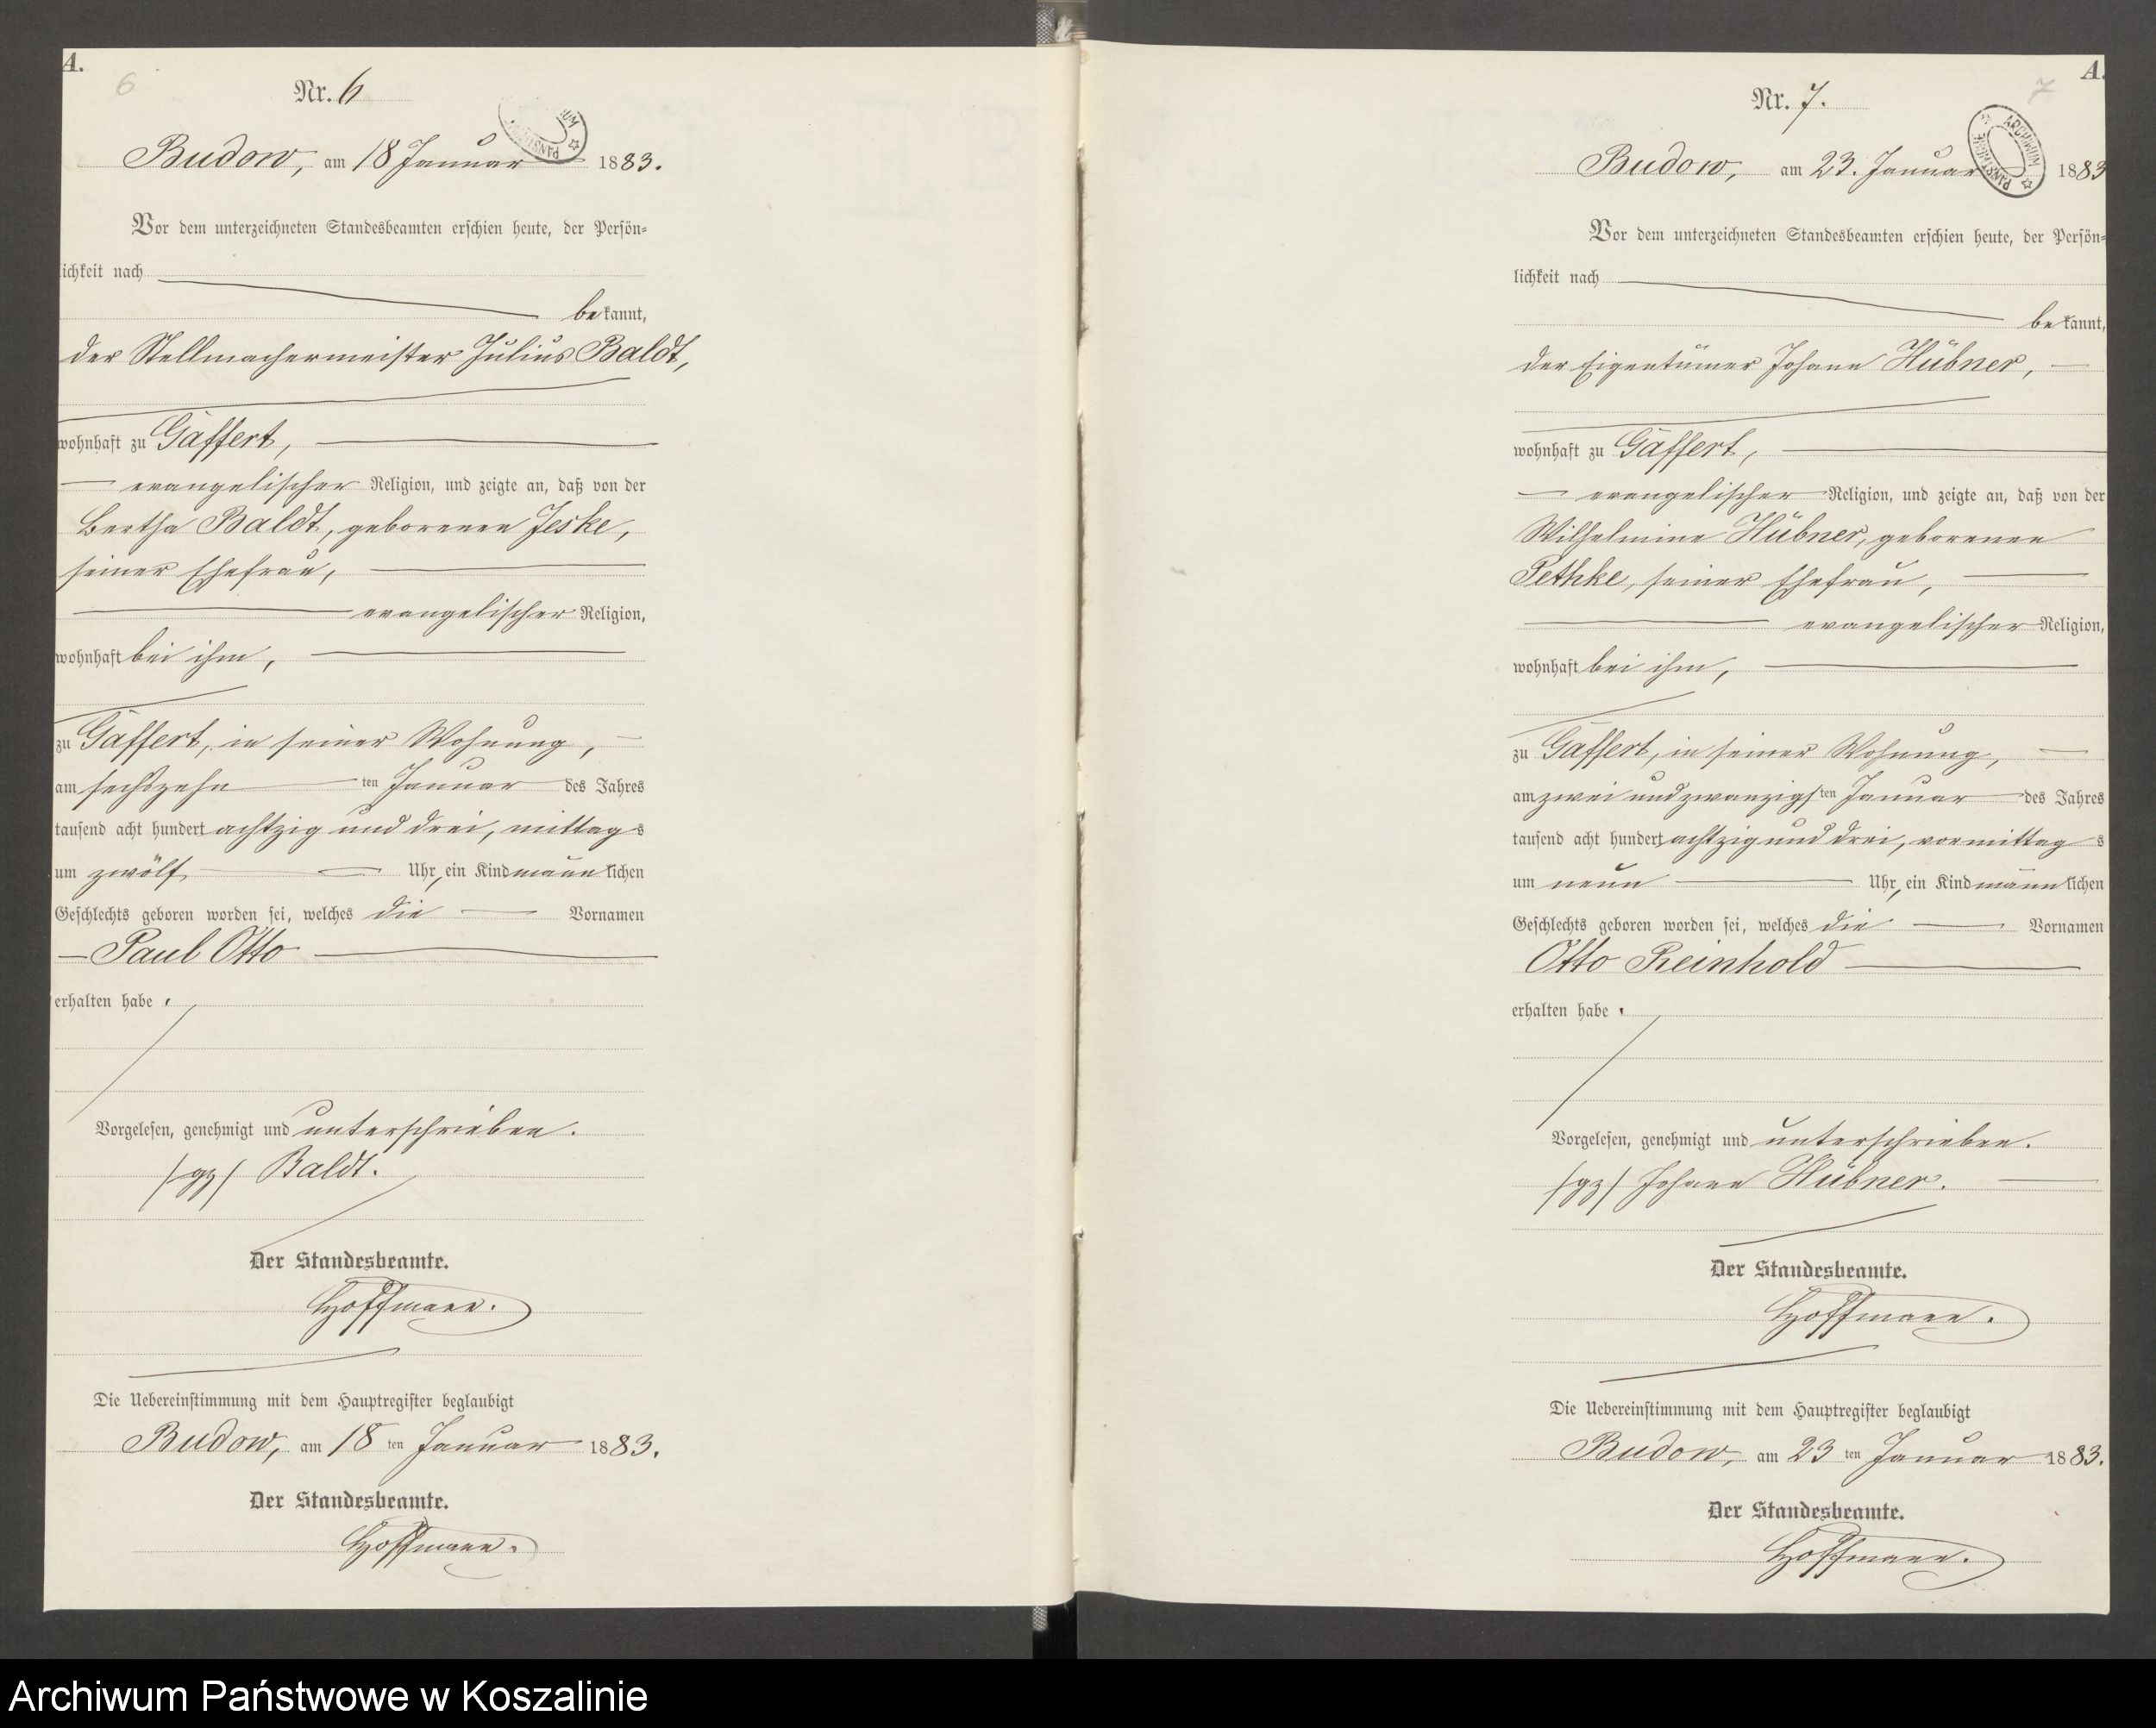 A.
6
Nr. 6
Budow, am 18 Januar 1883.
Vor dem unterzeichneten Standesbeamten erschien heute, der Persön=
lichkeit nach
bekannt,
der Stellmachermeister Julius Baldt,
wohnhaft zu Gaffert,
evangelischer Religion, und zeigte an, daß von der
Bertha Baldt, geborenen Jeske,
seiner Ehefrau,
evangelischer Religion,
wohnhaft bei ihm,
zu Gaffert, in seiner Wohnung,
am sechszehn ten Januar des Jahres
tausend acht hundert achtzig und drei, mittags
um zwölf Uhr, ein Kind männlichen
Geschlechts geboren worden sei, welches die Vornamen
Paul Otto
erhalten habe.
Vorgelesen, genehmigt und unterschrieben.
/gz/ Baldt.
Der Standesbeamte.
Hoffmann.
Die Uebereinstimmung mit dem Hauptregister beglaubigt
Budow, am 18 ten Januar 1883.
Der Standesbeamte.
Hoffmann.
A.
7
Nr. 7.
ARCHIWUM PAŃSTWOWE
Budow, am 23. Januar 1883
Vor dem unterzeichneten Standesbeamten erschien heute, der Persön=
lichkeit nach
bekannt,
der Eigentümer Johann Hübner,
wohnhaft zu Gaffert,
evangelischer Religion, und zeigte an, daß von der
Wilhelmine Hübner, geborenen
Pethke, seiner Ehefrau,
evangelischer Religion,
wohnhaft bei ihm,
zu Gaffert, in seiner Wohnung,
am zwei und zwanzigsten Januar des Jahres
tausend acht hundert achtzig und drei, vormittags
um neun Uhr, ein Kind männlichen
Geschlechts geboren worden sei, welches die Vornamen
Otto Reinhold
erhalten habe.
Vorgelesen, genehmigt und unterschrieben.
/gz/ Johann Hübner.
Der Standesbeamte.
Hoffmann.
Die Uebereinstimmung mit dem Hauptregister beglaubigt
Budow, am 23 ten Januar 1883.
Der Standesbeamte.
Hoffmann.
Archiwum Państwowe w Koszalinie